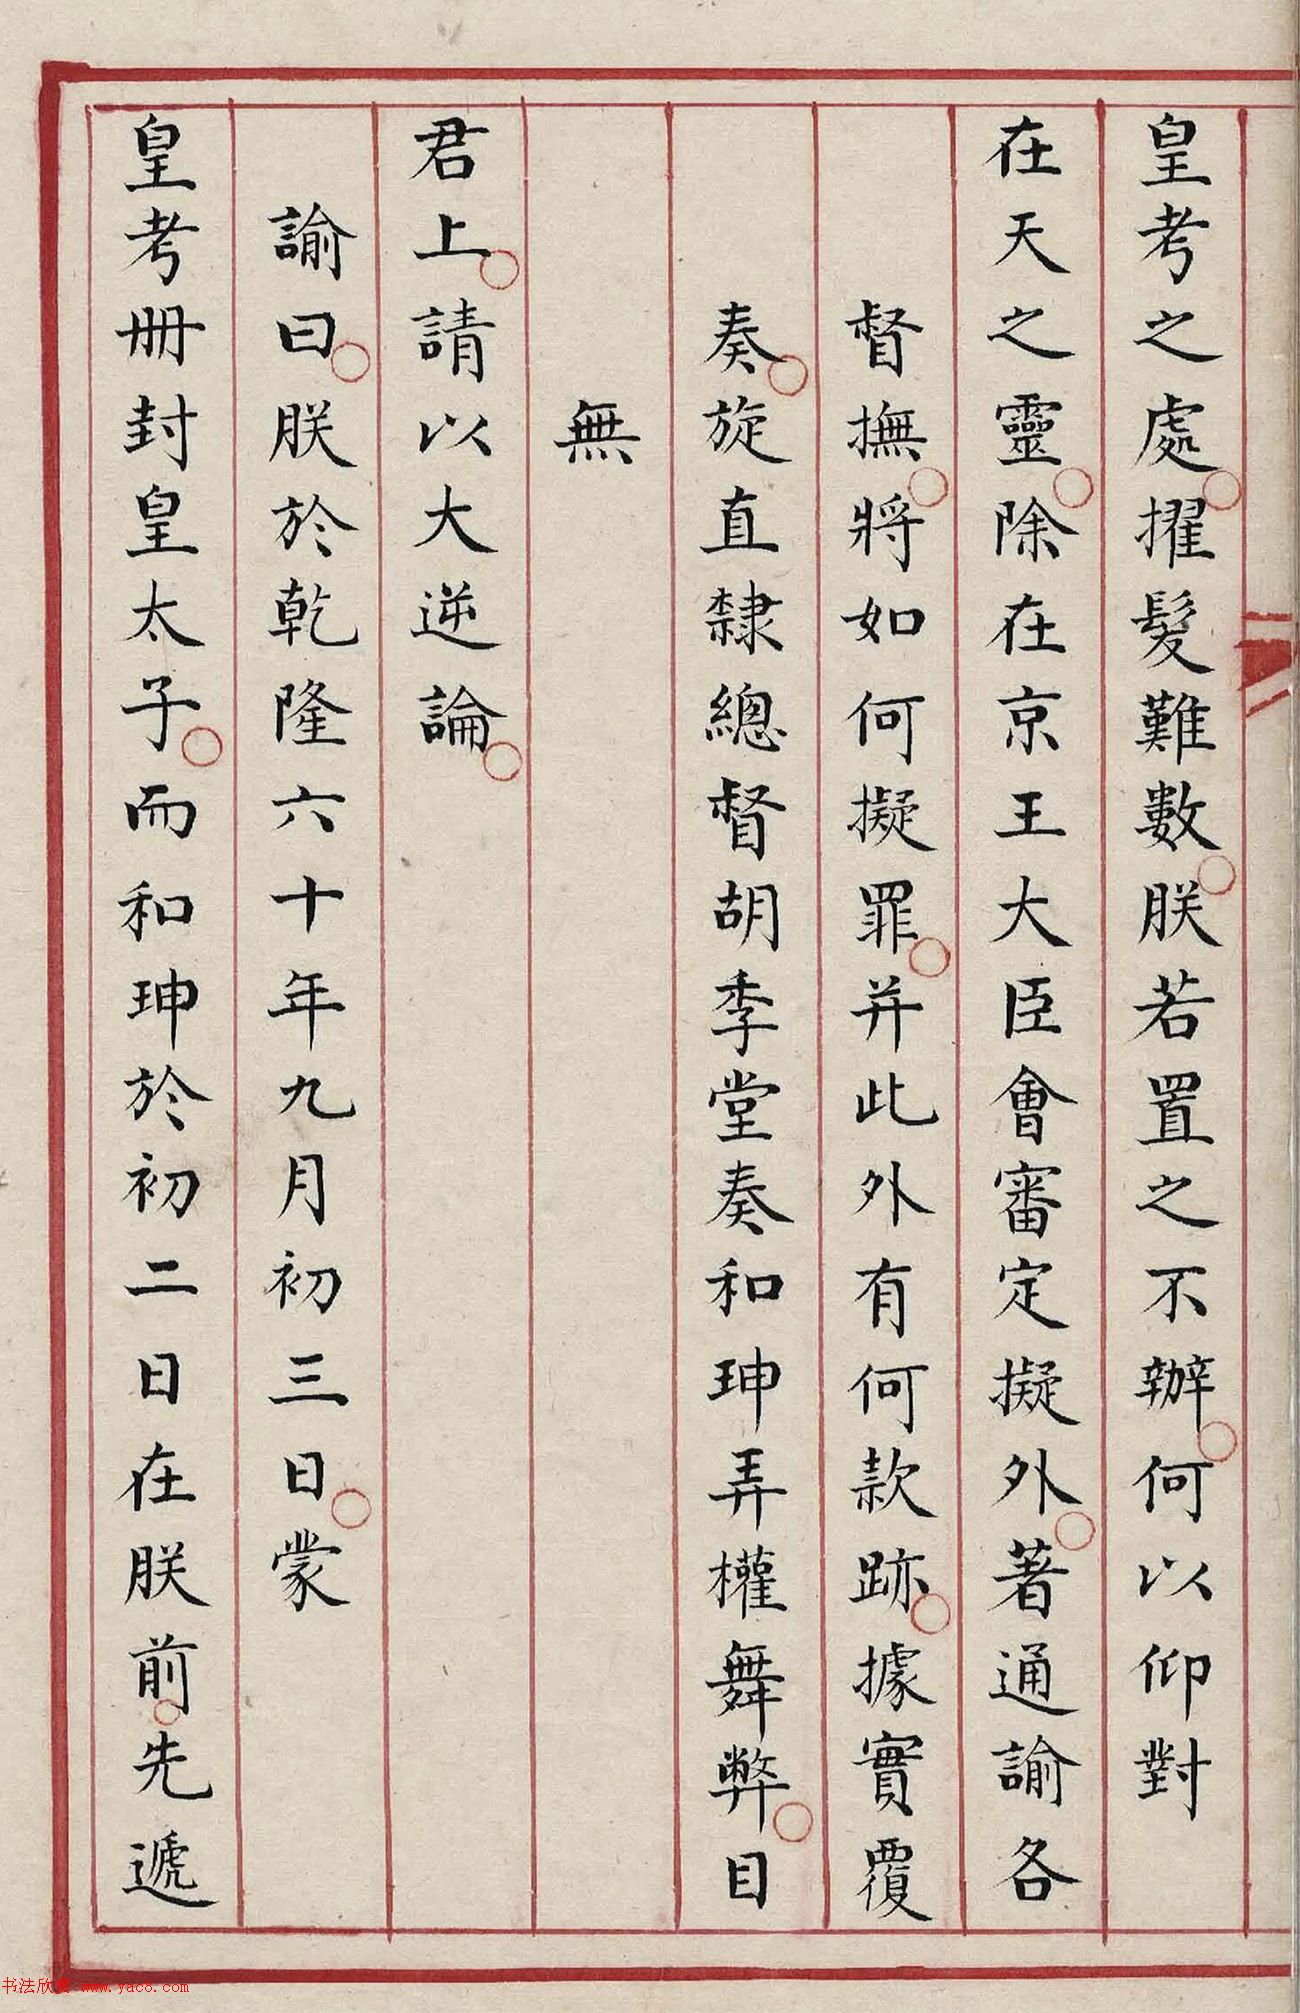 皇考之處擢髮難數朕若置之不辦何以仰對
在天之靈除在京王大臣會審定擬外著通諭各
督撫將如何擬罪并此外有何款跡據實覆
奏旋直隸總督胡季堂奏和珅弄權舞弊目
無
君上請以大逆論
諭曰朕於乾隆六十年九月初三日蒙
皇考冊封皇太子而和珅於初二日在朕前先遞
书法欣赏 www.yac8.com